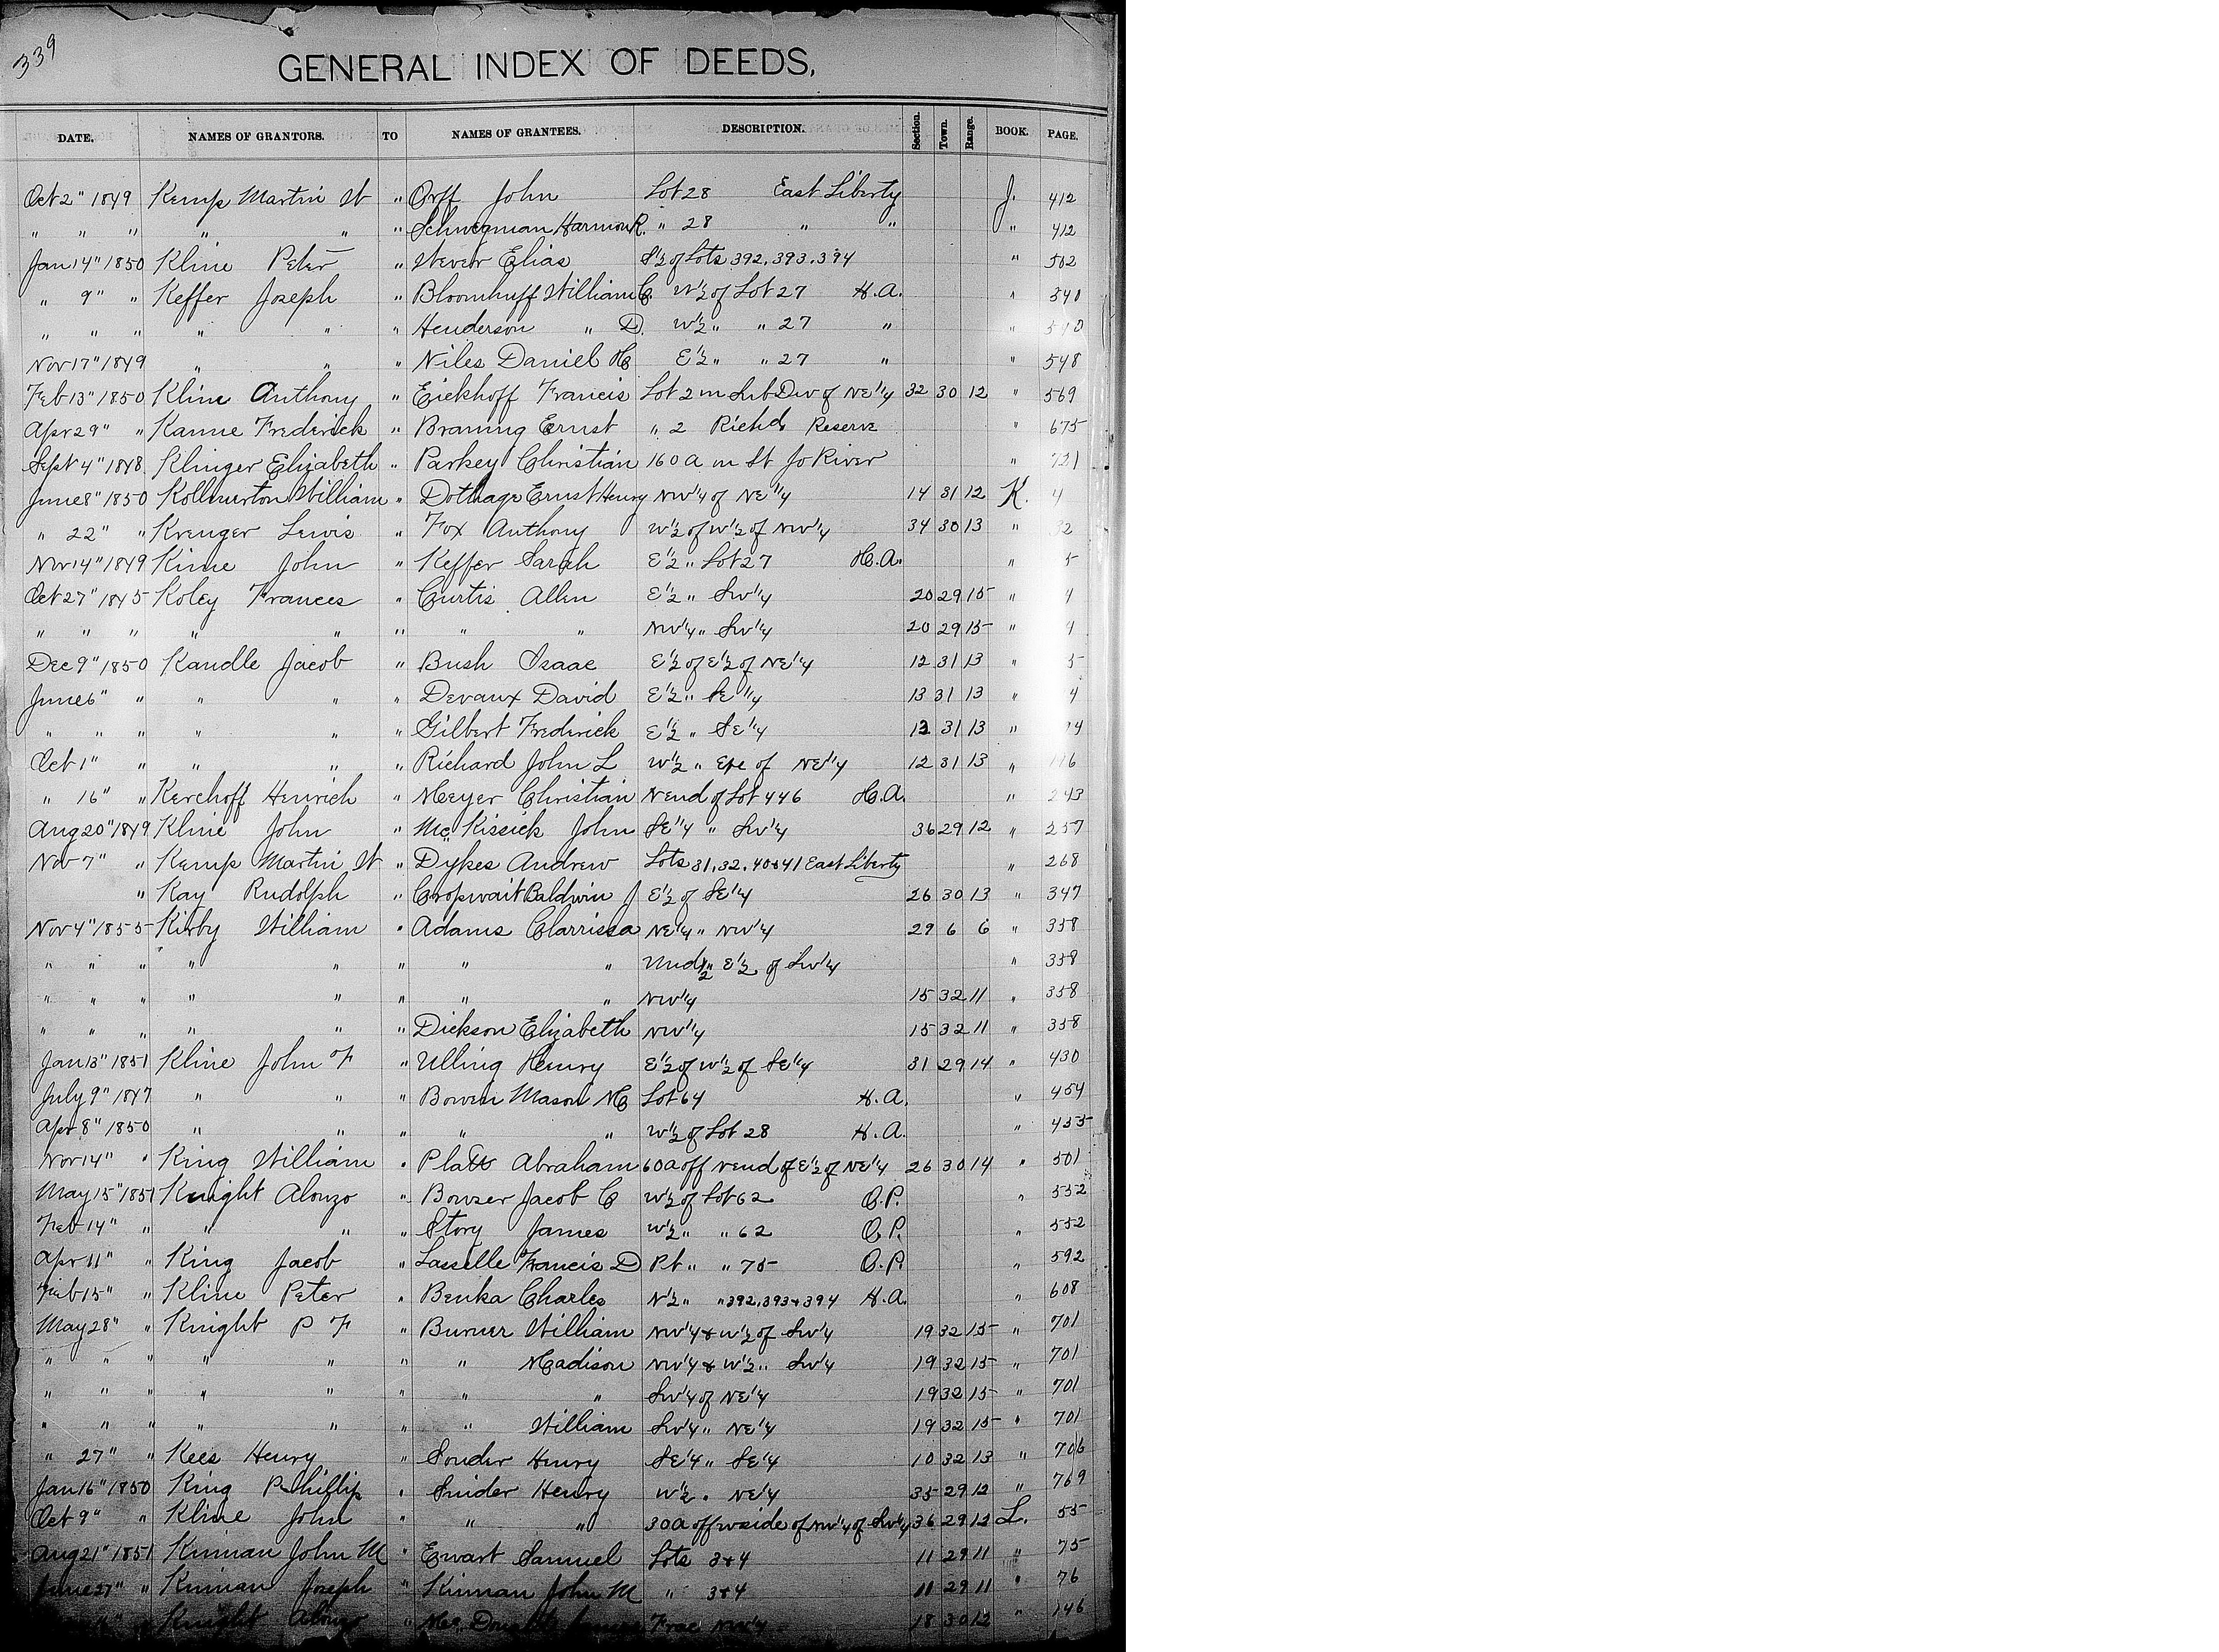 339
GENERAL INDEX OF DEEDS.
DATE. NAMES OF GRANTORS. TO NAMES OF GRANTEES. DESCRIPTION. Section. Town. Range. BOOK. PAGE.
Oct 2" 1849 Kemp Martin W " Orff John Lot 28 East Liberty J. 412
" " " " " " Schwegman Harmon R. " 28 " " " 412
Jan 14" 1850 Kline Peter " Wever Elias S½ of Lots 392, 393, 394 " 502
" 9" " Keffer Joseph " Bloomhuff William C. W½ of Lot 27 H.A. " 540
" " " " " " Henderson " D. W½ " " 27 " "
Nov 17" 1849 " " " Niles Daniel H E½ " " 27 " " 548
Feb 13" 1850 Kline Anthony " Eickhoff Francis Lot 2 in Sub Div of NE¼ 32 30 12 " 569
Apr 29" " Kanne Frederick " Braning Ernst " 2 Richd Reserve " 675
Sept 4" 1848 Klinger Elizabeth " Parkey Christian 160 A on St Jo River " 721
June 8" 1850 Kollmerton William " Dothage Ernst Henry NW¼ of NE¼ 14 31 12 K. 4
" 22" " Kreuger Lewis " Fox Anthony W½ of W½ of NW¼ 34 30 13 " 32
Nov 14" 1849 Kime John " Keffer Sarah E½ " Lot 27 H.A. "
Oct 27" 1845 Koley Frances " Curtis Allen E½ " SW¼ 20 29 15 "
" " " " " " " " NW¼ " SW¼ 20 29 15 "
Dec 9" 1850 Kandle Jacob " Bush Isaac E½ of E½ of NE¼ 12 31 13 "
June 6" " " " " Devaux David E½ " SE¼ 13 31 13 "
" " " " " " Gilbert Frederick E½ " SE¼ 12 31 13 "
Oct 1" " " " " Richard John L W½ " Exc of NE¼ 12 31 13 "
" 16" " Kerchoff Henrich " Meyer Christian N end of Lot 446 H.A. " 243
Aug 20" 1849 Kline John " McKissick John SE¼ " SW¼ 36 29 12 " 257
Nov 7" " Kemp Martin W " Dykes Andrew Lots 31, 32, 40 & 41 East Liberty " 268
" Kay Rudolph " Cropwait Baldwin J E½ of SE¼ 26 30 13 " 347
Nov 4" 1855 Kirby William " Adams Clarrissa NE¼ " NW¼ 29 6 6 " 358
" " " " " " " " Und ½ " E½ of SW¼ " 358
" " " " " " " " NW¼ 15 32 11 " 358
" " " " " " Dickson Elizabeth NW¼ 15 32 11 " 358
Jan 13" 1851 Kline John F " Ulling Henry E½ of W½ of SE¼ 31 29 14 " 430
July 9" 1847 " " " Bowen Mason M Lot 64 H.A. " 454
Apr 8" 1850 " " " " " W½ of Lot 28 H.A. " 455
Nov 14" " King William " Platts Abraham 60 a off N end of E½ of NE¼ 26 30 14 " 501
May 15" 1851 Knight Alonzo " Bowser Jacob C W½ of Lot 62 O.P. " 552
Feb 14" " " " " Story James W½ " " 62 O.P. " 552
Apr 11" " King Jacob " Lasselle Francis D Pt " " 75 O.P. " 592
Feb 15" " Kline Peter " Benka Charles N½ " " 392, 393 & 394 H.A. " 608
May 28" " Knight P F " Burner William NW¼ & W½ of SW¼ 19 32 15 " 701
" " " " " " " Madison NW¼ & W½ " SW¼ 19 32 15 " 701
" " " " " " " " SW¼ of NE¼ 19 32 15 " 701
" " " " " " " William SW¼ " NE¼ 19 32 15 " 701
" 27" " Kees Henry " Souder Henry SE¼ " SE¼ 10 32 13 " 706
Jan 16" 1850 King Phillip " Snider Henry W½ " NE¼ 35 29 12 " 769
Oct 9" " Kline John " " " 30 a off W side of NW¼ of SW¼ 36 29 12 L. 55
Aug 21" 1851 Kinnan John M " Ewart Samuel Lots 3 & 4 11 29 11 " 75
June 27" " Kinnan Joseph " Kinnan John M " 3 & 4 11 29 11 " 76
Knight Alonzo " Frac NW¼ 18 30 12 " 146